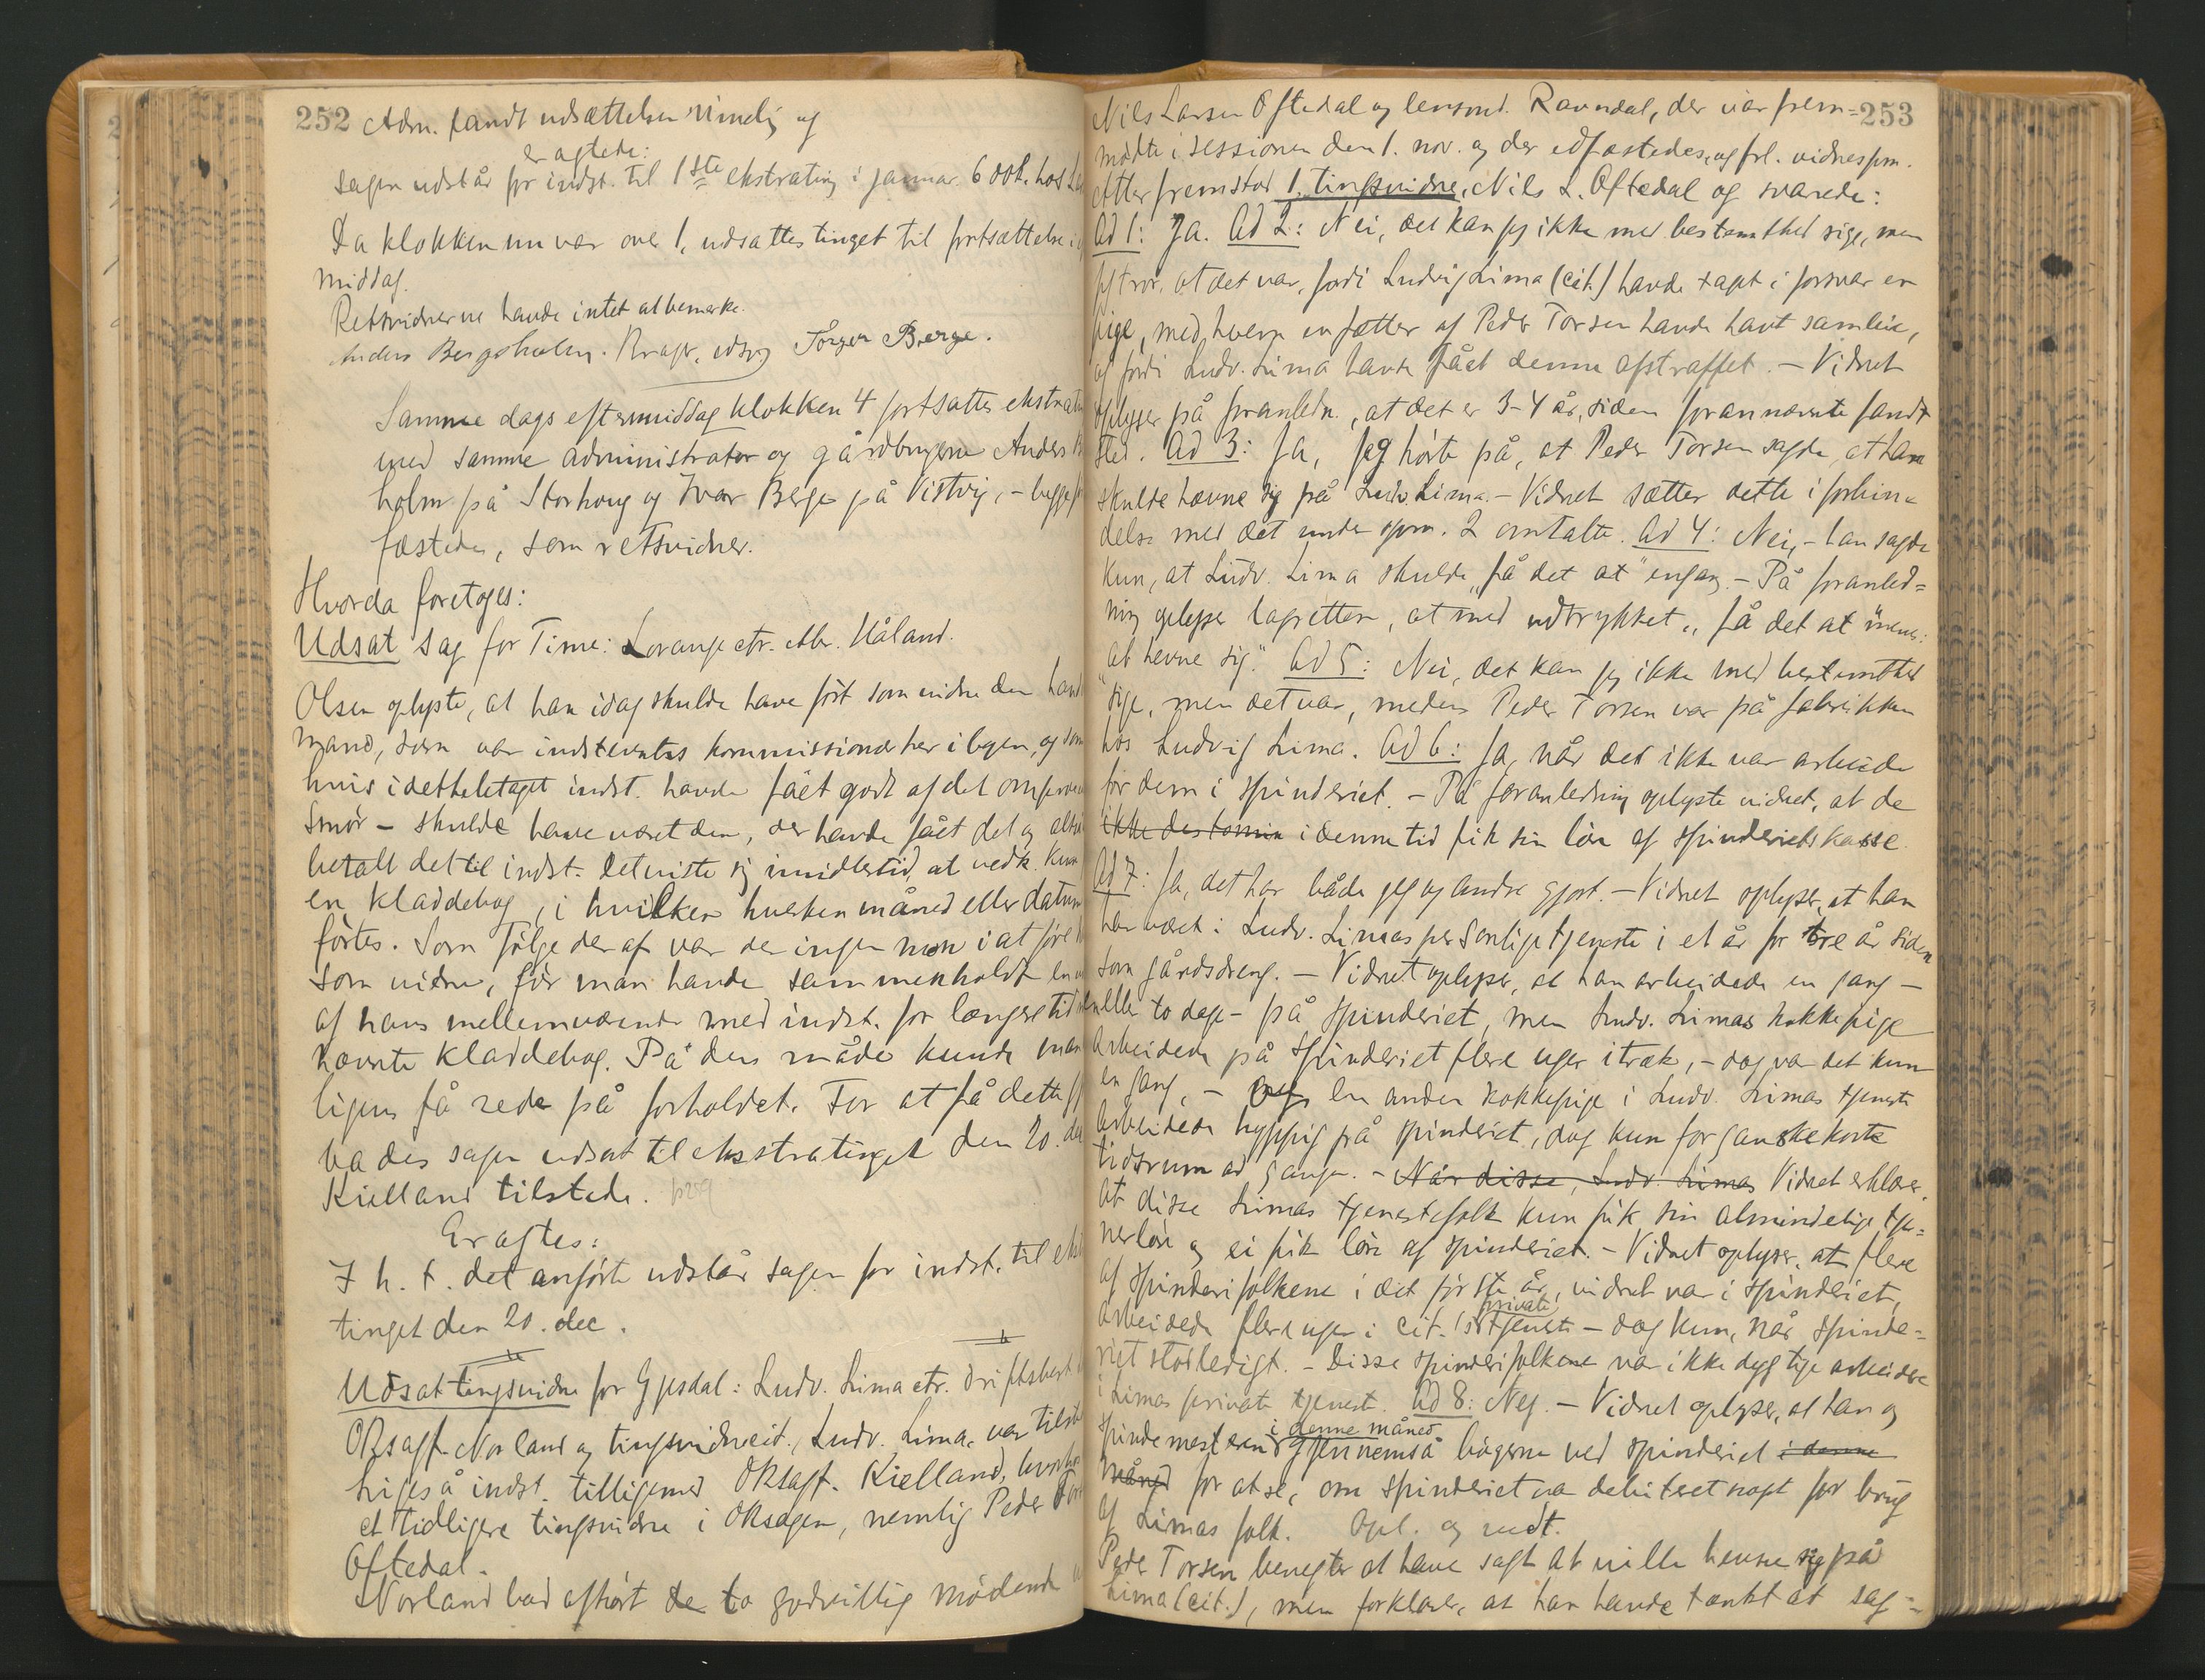 252
Adm. fandt udsættelsen rimelig og
eragtede:
sagen udstår for indst. til 1ste ekstrating i januar.
Da klokken nu var over 1, udsattes tinget til fortsættelse i
middag.
Retsvidnerne havde intet at bemærke.
Anders Bergsholm. Berge.
Samme dags eftermiddag klokken 4 fortsattes ekstra
med samme administrator og gårdbrugerne Anders B
holm på Storhoug og Ivar Berge på Vistvig, - begge
fæstede, som retsvidner.
Hvorda foretoges:
Udsat sag for Time: Lorange ctr. Håland.
Olsen oplyste, at han idag skulde have ført som vidne den hand
mand, som var indstevntes kommissionær her i byen, og som
hvis i dettehele taget indst. havde fået godt af det omspurte
Smør - skulde have været den, der havde fået det og altså
betalt det til indst. Det viste sig imidlertid, at vedk. kun
en kladdebog, i hvilken hverken måned eller datum
førtes. Som følge deraf var der ingen mon i at føre
som vidne, før man havde sammenholdt en
af hans mellemværende med indst. for længere tid
nævnte kladdebog. På den måde kunde man
ligens få rede på forholdet. For at få dette
bades sagen udsat til ekstratinget den 20. de
Kielland tilstede.
Eragtes:
I h. t. det anførte udstår sagen for indst. til ekst
tinget den 20. dec.
Udsat tingsvidne for Gjesdal: Ludv. Lima ctr. driftsbest
ORsagf. Norland og tingsvidnecit., Ludv. Lima, var tilst
Ligeså indst. tilligemed ORsagf. Kielland,
et tidligere tingsvidne i ORsagen, nemlig Peder Tor
Oftedal.
Norland bad afhørt de to godvillig mødende
253
Nils Larsen Oftedal og lensmd. Ravndal, der var frem-
mødte i sessionen den 1. nov. og der edfæstedes, og frl. vidnespm.
Atter fremstod 1. tingsvidne, Nils L. Oftedal og svarede:
Ad 1: Ja. Ad 2: Nei, det kan jeg ikke med bestemthed sige, men
jeg tror, at det var, fordi Ludvig Lima (cit.) havde tagt i forsvar en
pige, med hvem en fætter af Peder Torsen havde havt samleie,
og fordi Ludv. Lima havde fået denne afstraffet. - Vidnet
oplyser på foranledn., at det er 3-4 år, siden forannævnte fandt
sted. Ad 3: Ja, jeg hørte på, at Peder Torsen sagde, at han
skulde hævne sig på Ludv. Lima. - Vidnet sætter dette i forbin-
delse med det under spm. 2 omtalte. Ad 4: Nei, - han sagde
kun, at Ludv. Lima skulde „få det at" engang. - På foranled-
ning oplyser lagretten, at med udtrykket „få det at" menes:
"at hevne sig." Ad 5: Nei, det kan jeg ikke med bestemthed
sige, men det var, medens Peder Torsen var på fabrikken
hos Ludvig Lima. Ad 6: Ja, når det ikke var arbeide
for dem i spinderiet. - På foranledning oplyste vidnet, at de
ikke destomin i denne tid fik sin løn af spinderiets kasse.
Ad 7: Ja, det har både jeg og andre gjort. - Vidnet oplyser, at han
har været i Ludv. Limas personlige tjeneste i et år for tre år siden
som gårdsdreng. - Vidnet oplyser, at han arbeidede en gang -
en eller to dage - på spinderiet, men Ludv. Limas kokkepige
arbeidede på spinderiet flere uger itræk, - dog var det kun
en gang, - En anden kokkepige i Ludv. Limas tjeneste
arbeidede hyppig på spinderiet, dog kun for ganske korte
tidsrum ad gangen. - Når disse, Ludv. Limas Vidnet erklærer,
at disse Limas tjenestefolk kun fik sin almindelige tje-
nerløn og ei fik løn af spinderiet. - Vidnet oplyser, at flere
af spinderifolkene i det første år, vidnet var i spinderiet,
arbeidede flere uger i cit.'s private tjeneste - dog kun, når spinde-
riet stod ledigt. - Disse spinderifolkene var ikke dygtige arbeidere
i Limas private tjeneste. Ad 8: Nej. - Vidnet oplyser, at han og
spindemesteren i denne måned gjennemså bøgerne ved spinderiet i denne
måned for at se, om spinderiet var debiteret noget for brug
af Limas folk. Opl. og vedt.
Peder Torsen benegter at have sagt at ville hevne sig på
Lima (cit.), men forklarer, at han havde tænkt at sag-